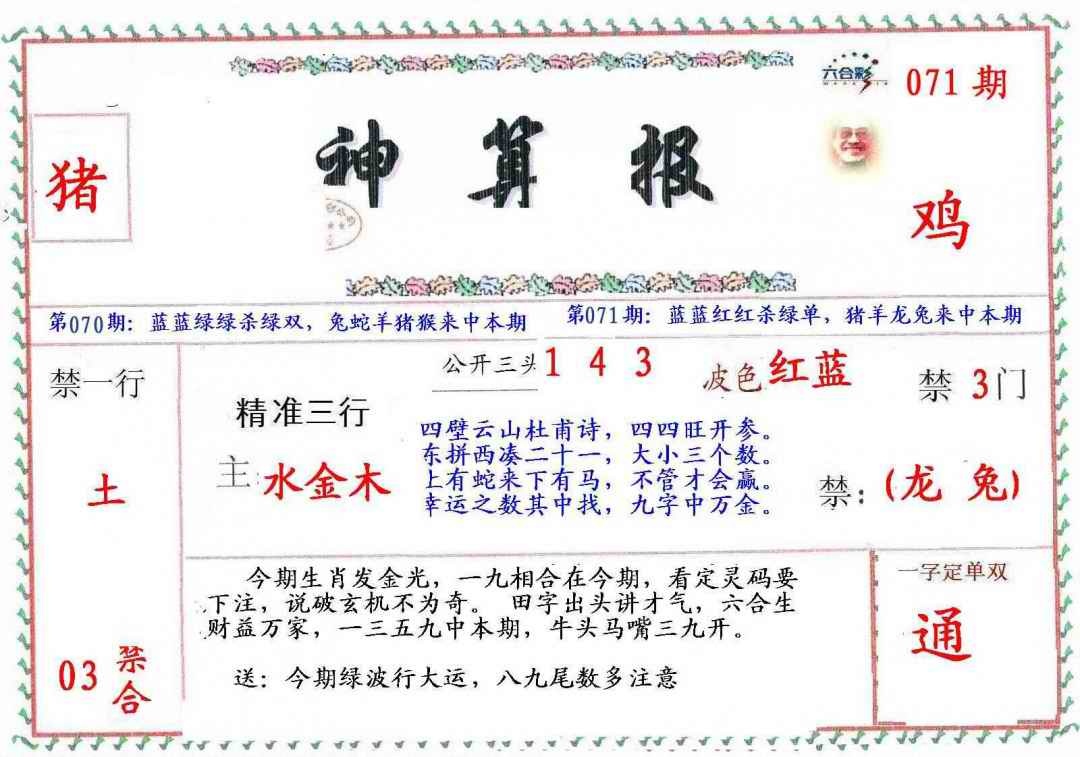 六合彩
071 期
神算报
猪
鸡
第070期：蓝蓝绿绿杀绿双，兔蛇羊猪猴来中本期
第071期：蓝蓝红红杀绿单，猪羊龙兔来中本期
禁一行
土
03 禁合
公开三头 1 4 3
波色 红蓝
禁 3门
精准三行
主：水金木
四壁云山杜甫诗，四四旺开参。
东拼西凑二十一，大小三个数。
上有蛇来下有马，不管才会赢。
幸运之数其中找，九字中万金。
禁：(龙 兔)
今期生肖发金光，一九相合在今期，看定灵码要
下注，说破玄机不为奇。 田字出头讲才气，六合生
财益万家，一三五九中本期，牛头马嘴三九开。
送：今期绿波行大运，八九尾数多注意
一字定单双
通